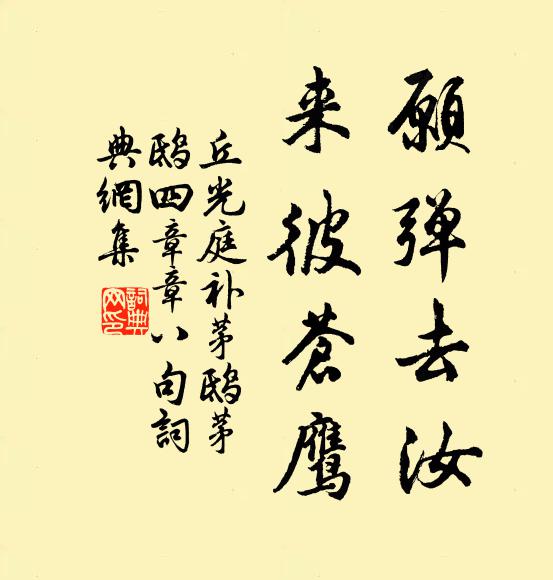 願弹去汝
来彼蒼鹰
丘光庭补茅鸱茅
鸱四章章八句詞
典網集
詞典
网印